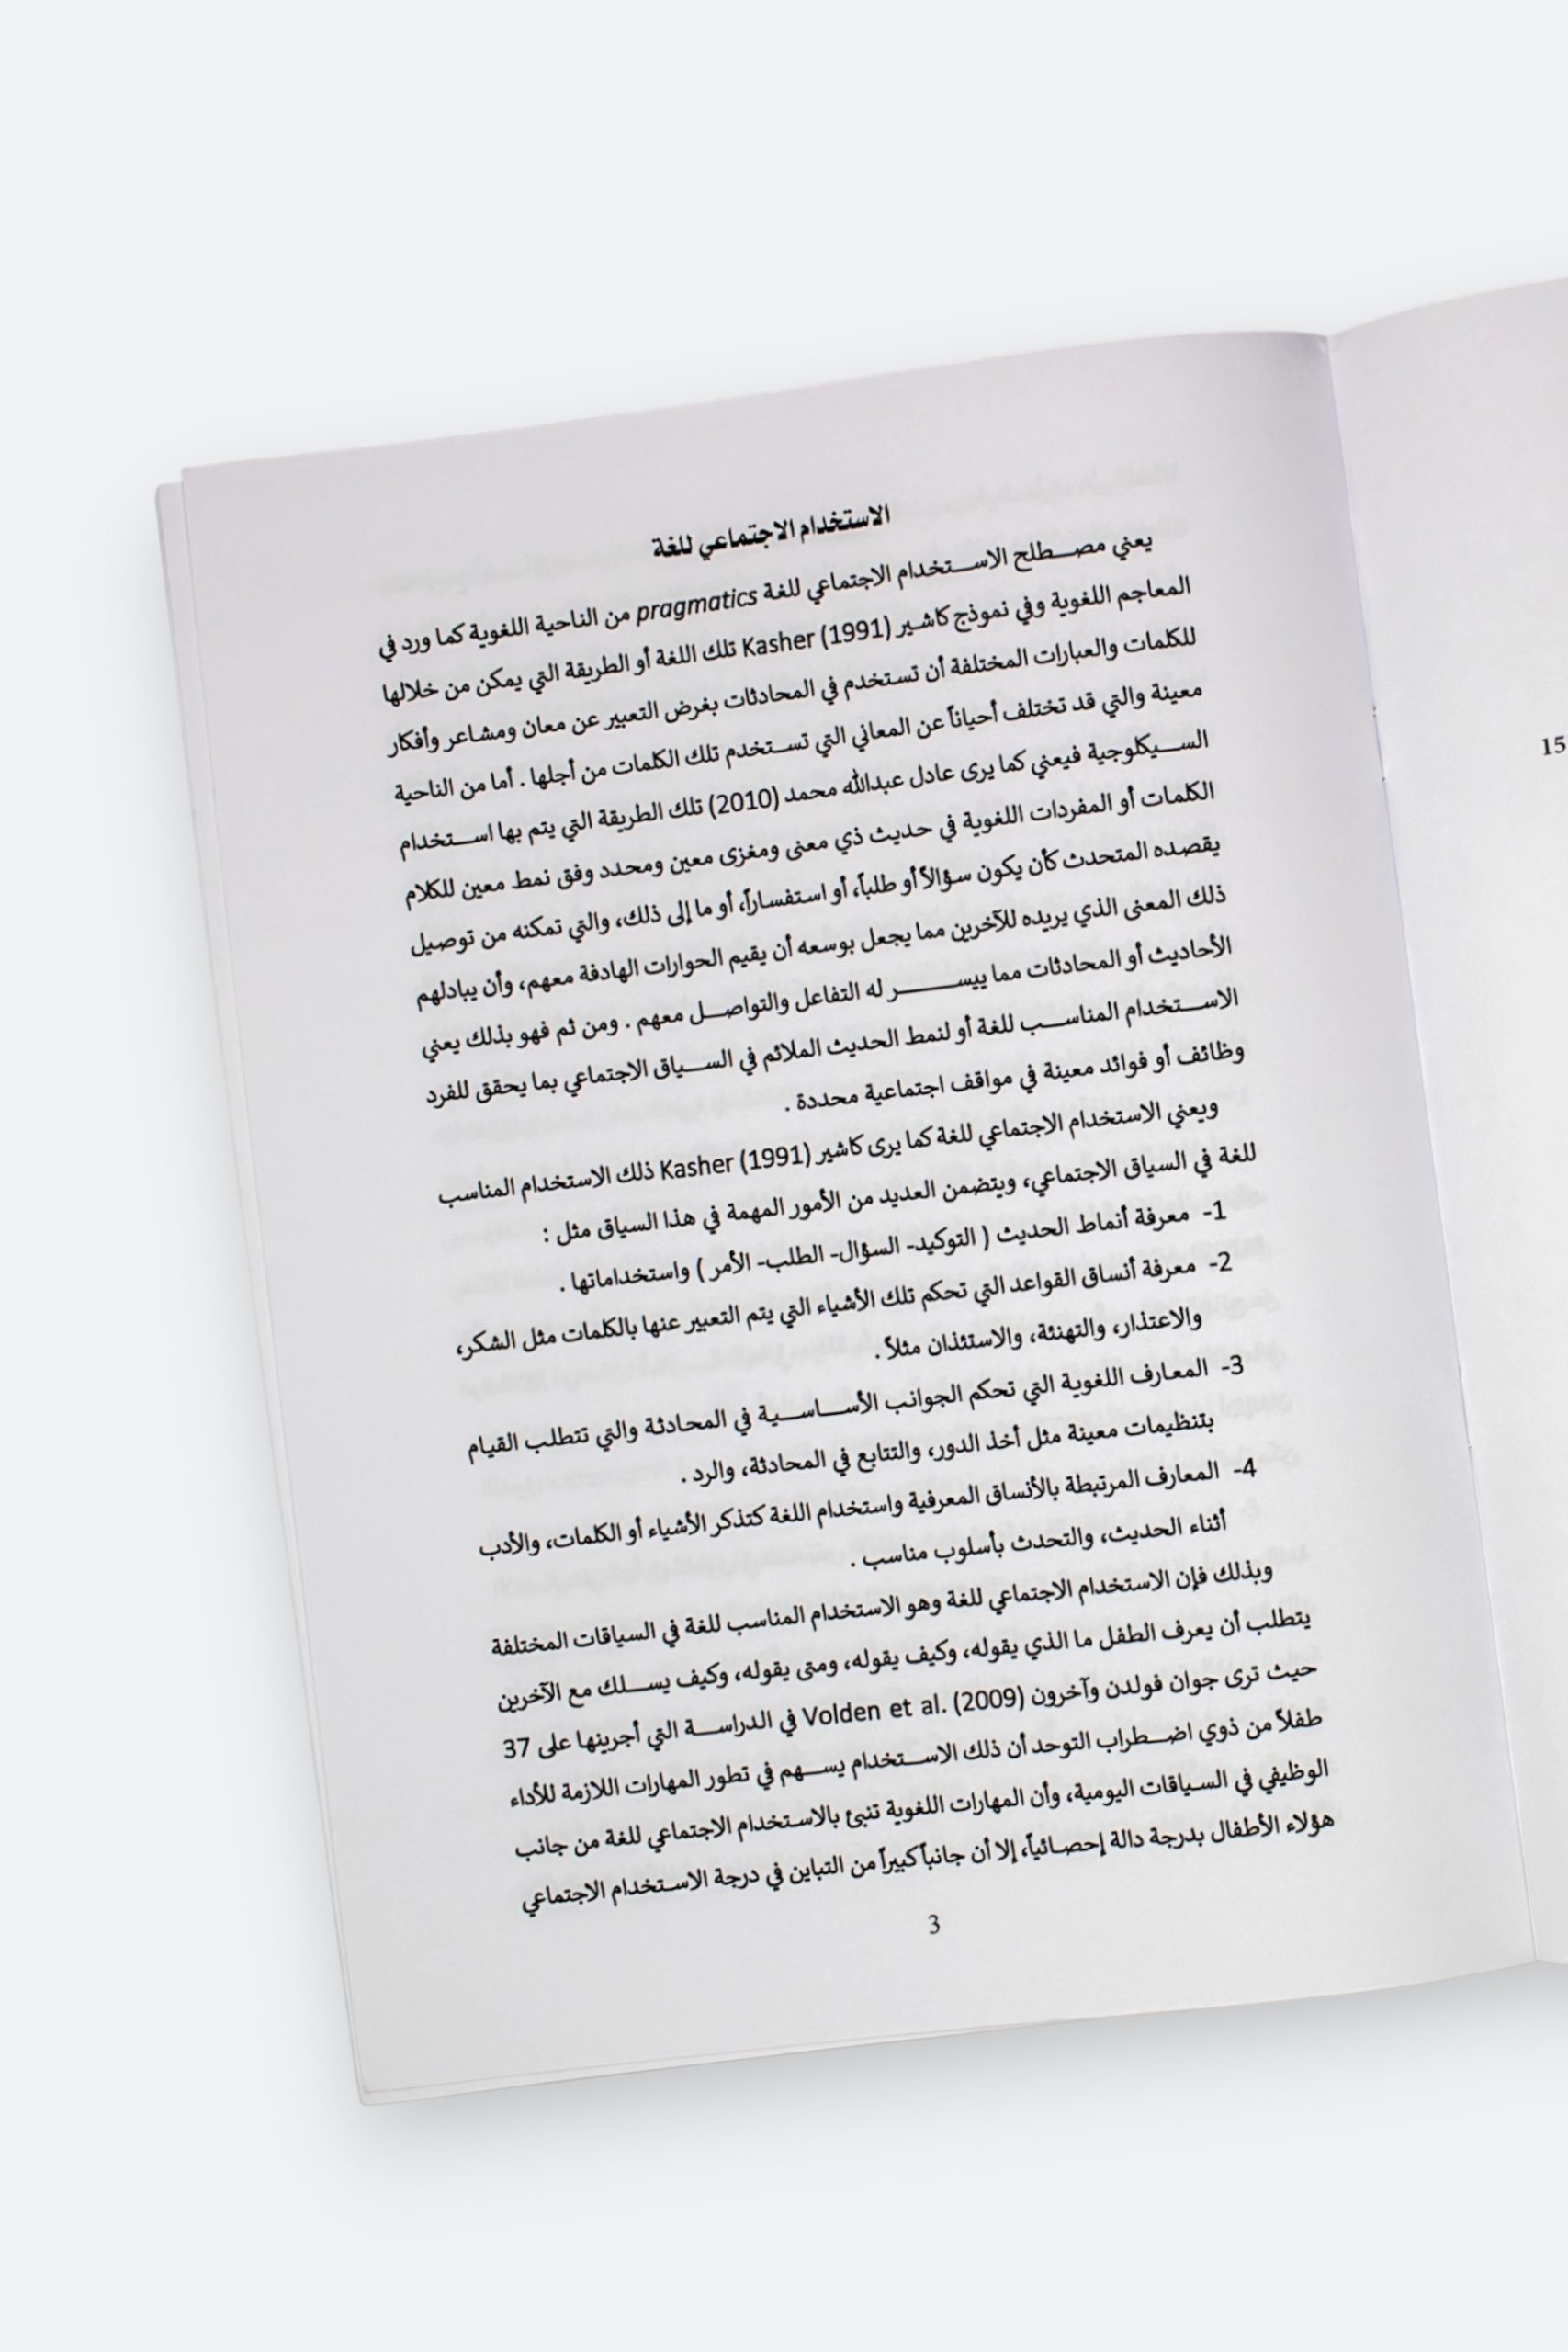 الاستخدام الاجتماعي للغة
يعني مصطلح الاستخدام الاجتماعي للغة pragmatics من الناحية اللغوية كما ورد في
المعاجم اللغوية وفي نموذج كاشير Kasher (1991) تلك اللغة أو الطريقة التي يمكن من خلالها
للكلمات والعبارات المختلفة أن تستخدم في المحادثات بغرض التعبير عن معان ومشاعر وأفكار
معينة والتي قد تختلف أحياناً عن المعاني التي تستخدم تلك الكلمات من أجلها . أما من الناحية
السيكلوجية فيعني كما يرى عادل عبدالله محمد (2010) تلك الطريقة التي يتم بها استخدام
الكلمات أو المفردات اللغوية في حديث ذي معنى ومغزى معين ومحدد وفق نمط معين للكلام
يقصده المتحدث كأن يكون سؤالاً أو طلباً، أو استفساراً، أو ما إلى ذلك، والتي تمكنه من توصيل
ذلك المعنى الذي يريده للآخرين مما يجعل بوسعه أن يقيم الحوارات الهادفة معهم، وأن يبادلهم
الأحاديث أو المحادثات مما ييسر له التفاعل والتواصل معهم . ومن ثم فهو بذلك يعني
الاستخدام المناسب للغة أو لنمط الحديث الملائم في السياق الاجتماعي بما يحقق للفرد
وظائف أو فوائد معينة في مواقف اجتماعية محددة .
ويعني الاستخدام الاجتماعي للغة كما يرى كاشير Kasher (1991) ذلك الاستخدام المناسب
للغة في السياق الاجتماعي، ويتضمن العديد من الأمور المهمة في هذا السياق مثل :
1- معرفة أنماط الحديث ( التوكيد- السؤال- الطلب- الأمر ) واستخداماتها .
2- معرفة أنساق القواعد التي تحكم تلك الأشياء التي يتم التعبير عنها بالكلمات مثل الشكر،
والاعتذار، والتهنئة، والاستئذان مثلاً .
3- المعارف اللغوية التي تحكم الجوانب الأساسية في المحادثة والتي تتطلب القيام
بتنظيمات معينة مثل أخذ الدور، والتتابع في المحادثة، والرد .
4- المعارف المرتبطة بالأنساق المعرفية واستخدام اللغة كتذكر الأشياء أو الكلمات، والأدب
أثناء الحديث، والتحدث بأسلوب مناسب .
وبذلك فإن الاستخدام الاجتماعي للغة وهو الاستخدام المناسب للغة في السياقات المختلفة
يتطلب أن يعرف الطفل ما الذي يقوله، وكيف يقوله، ومتى يقوله، وكيف يسلك مع الآخرين
حيث ترى جوان فولدن وآخرون Volden et al. (2009) في الدراسة التي أجرينها على 37
طفلاً من ذوي اضطراب التوحد أن ذلك الاستخدام يسهم في تطور المهارات اللازمة للأداء
الوظيفي في السياقات اليومية، وأن المهارات اللغوية تنبئ بالاستخدام الاجتماعي للغة من جانب
هؤلاء الأطفال بدرجة دالة إحصائياً، إلا أن جانباً كبيراً من التباين في درجة الاستخدام الاجتماعي
3
15